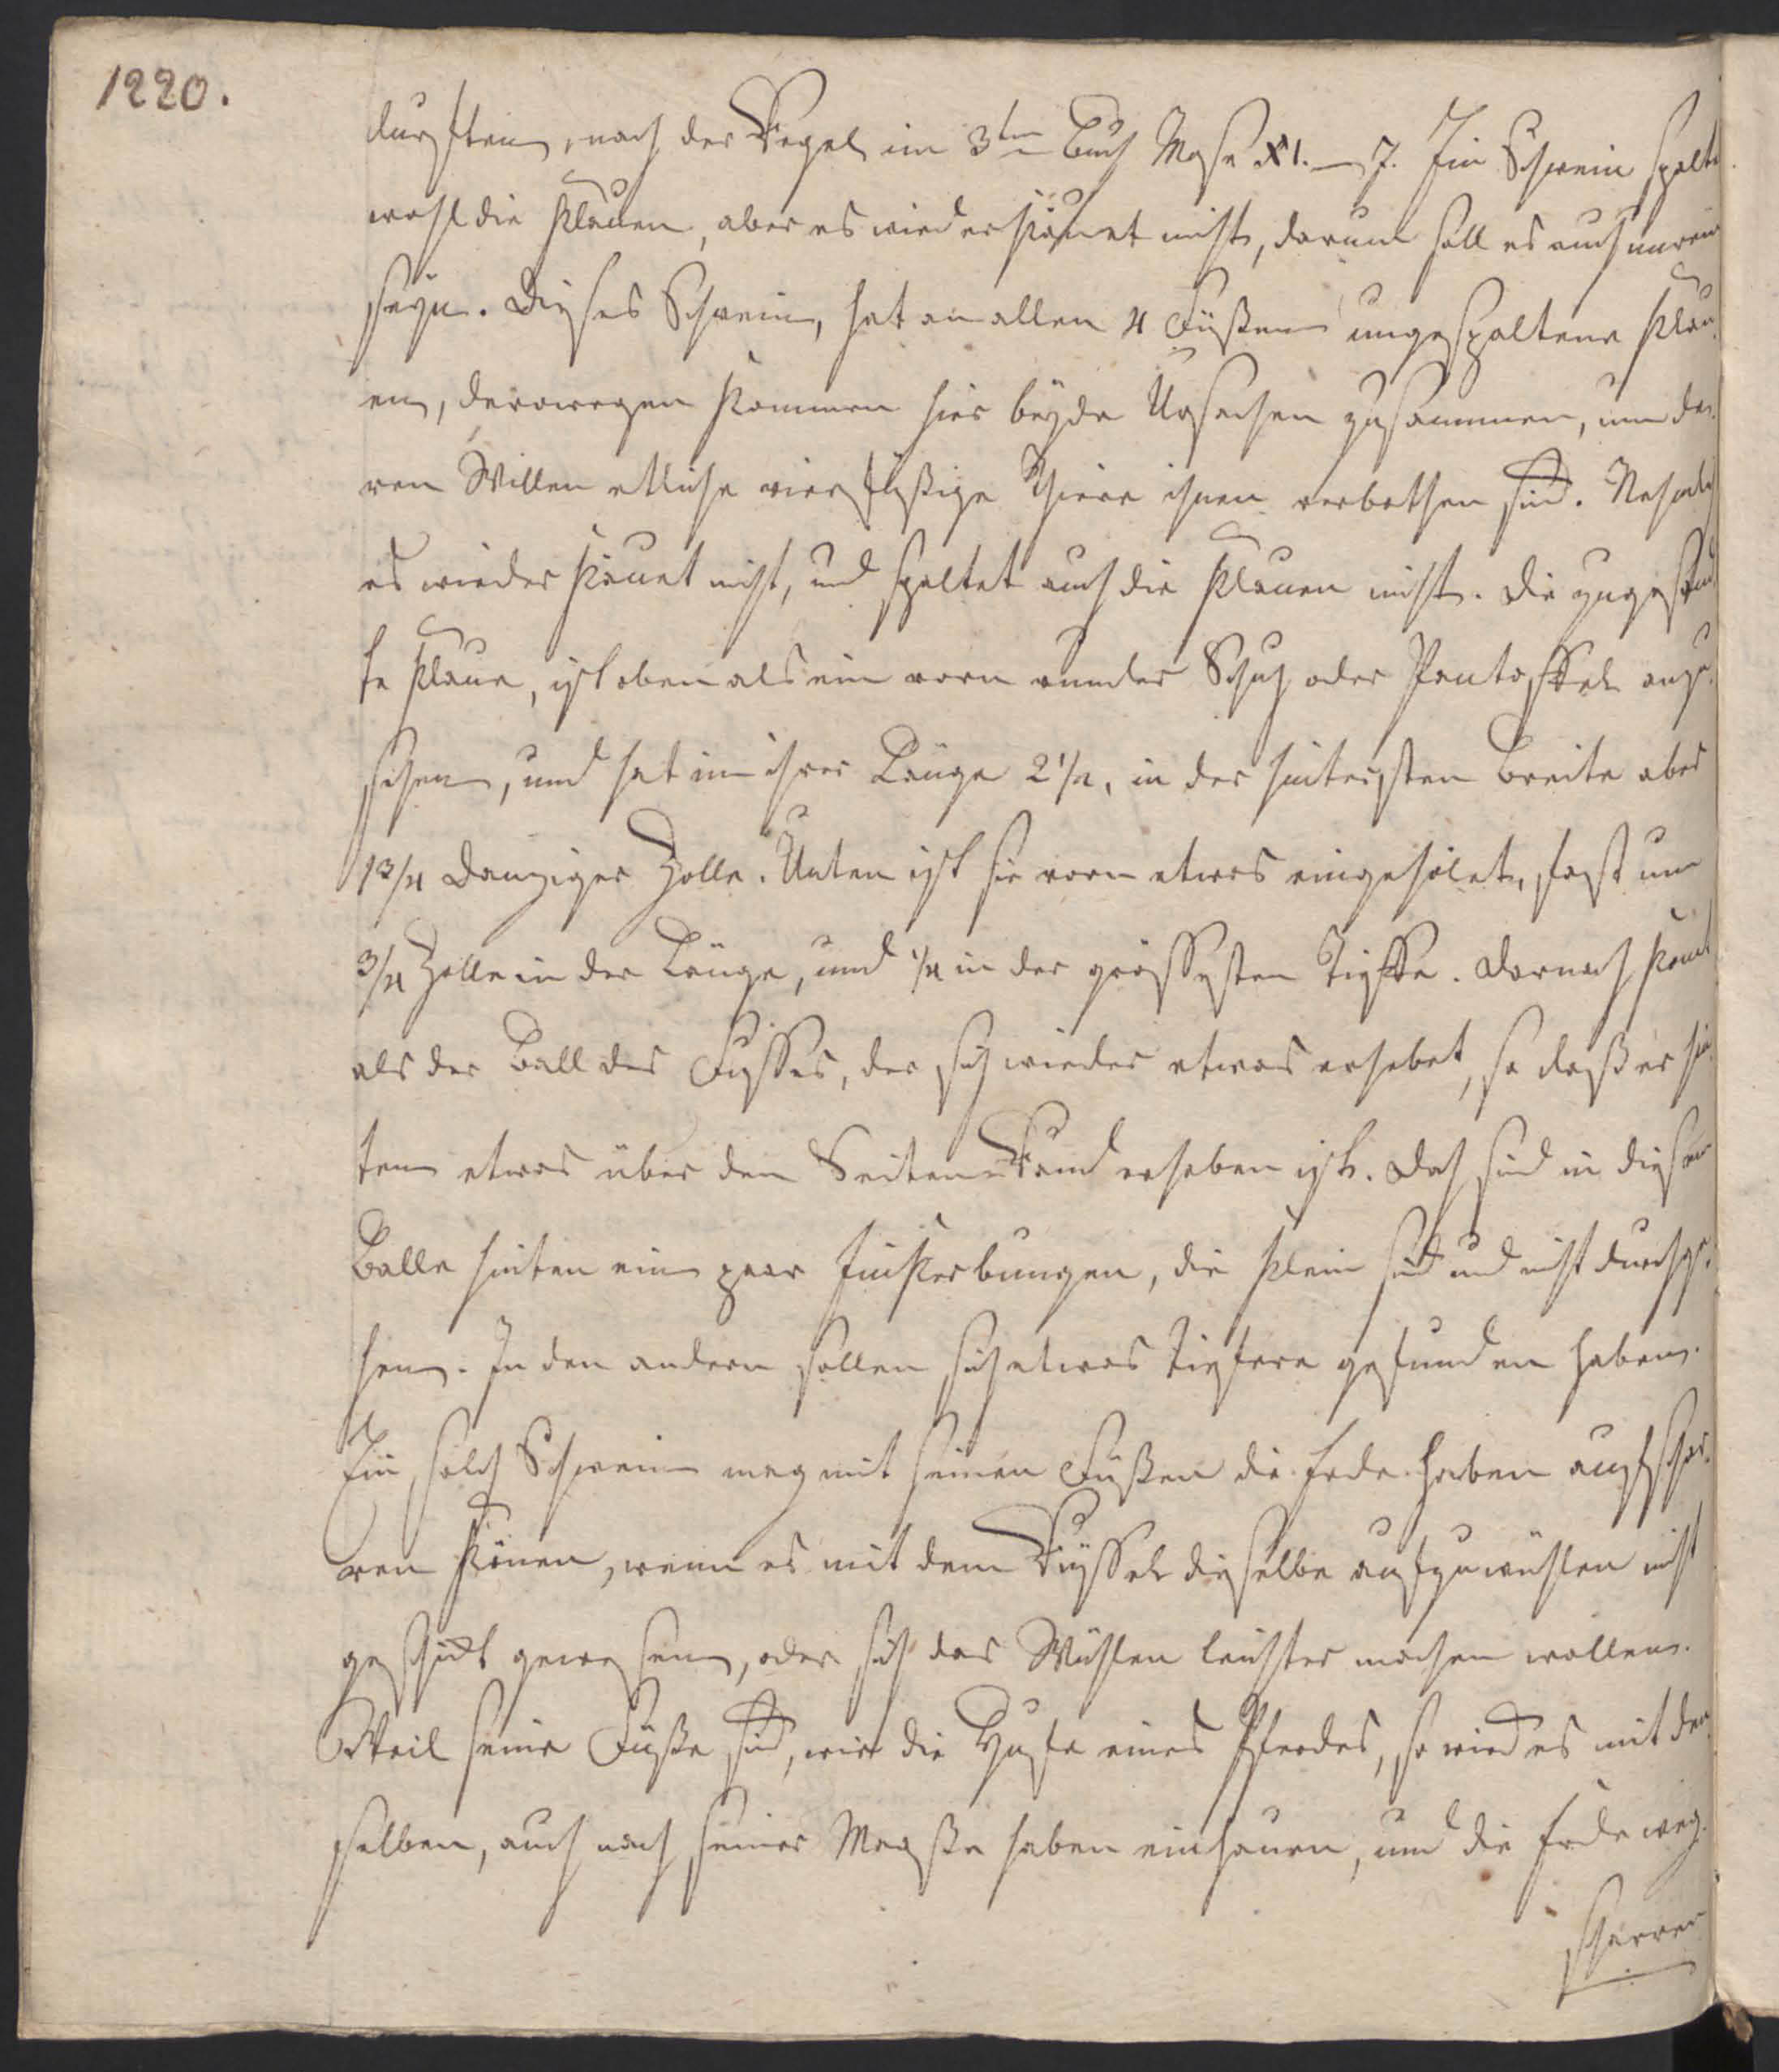 1220.
durfften, nach der Regel im 3ten Buch Mose XI. 7. Ein Schwein spaltet
wohl die Klauen, aber es wiederkäuet nicht, darum soll es euch unrein
seyn. Dieses Schwein, hat an allen 4 Füßen ungespaltene Klau
en, derowegen kommen hier beyde Ursachen zusammen, um de-
ren Willen etliche vierfüßige Thiere ihnen verbothen sind. Nehmlich
es wieder käuet nicht, und spaltet auch die Klauen nicht. Die zugesand
te Klaue, ist oben als ein vorn runder Schuh oder Pantoffel anzu
sehen, und hat in ihrer Länge 2 1/2, in der hintersten Breite aber
1 3/4 Danziger Zolle. Unten ist sie vorn etwas eingehölet, fast um
3/4 Zolle in der Länge, und 1/4 in der grössesten Tieffe. Darnach komt
als der Ball des Fusses, der sich wieder etwas erhebet, so daß er hin
ten etwas über den Seiten-Rand erhaben ist. Doch sind in diesem
Balle hinten ein paar Einkerbungen, die klein sind und nicht durchge
hen. In den andern sollen sich etwas tiefere gefunden haben.
Ein solch Schwein mag mit seinen Füßen die Erde haben aufschar
ren können, wenn es mit dem Rüssel dieselbe aufzuwühlen nicht
geschickt gewesen, oder sich das Wühlen leichter machen wollen.
Weil seine Füße sind, wie die Hufe eines Pferdes, so wird es mit den
selben, auch nach seiner Maaße haben einhauen, und die Erde weg
scharren